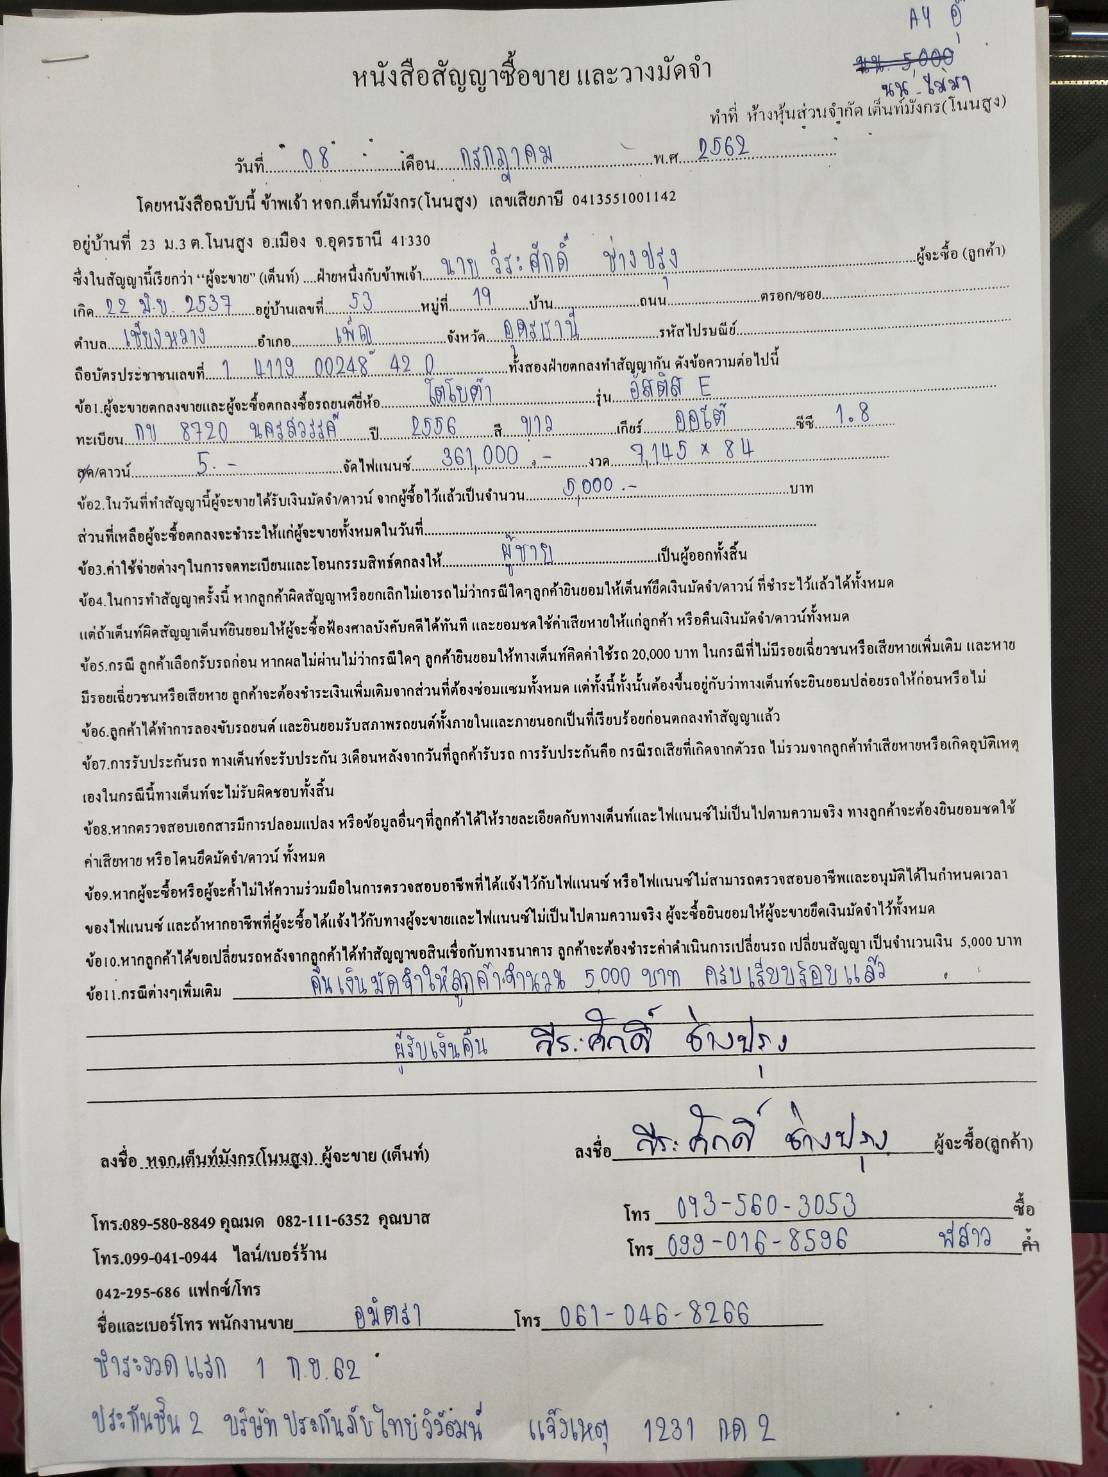 A4 อู๋
นน. 5,000
นน. ไม่มา
หนังสือสัญญาซื้อขาย และวางมัดจำ
ทำที่ ห้างหุ้นส่วนจำกัด เต็นท์มังกร(โนนสูง)
วันที่ 08 เดือน กรกฎาคม พ.ศ. 2562
โดยหนังสือฉบับนี้ ข้าพเจ้า หจก.เต็นท์มังกร(โนนสูง) เลขเสียภาษี 0413551001142
อยู่บ้านที่ 23 ม.3 ต.โนนสูง อ.เมือง จ.อุดรธานี 41330
ซึ่งในสัญญานี้เรียกว่า “ผู้จะขาย” (เต็นท์) ....ฝ่ายหนึ่งกับข้าพเจ้า นาย วีระศักดิ์ ช่างปรุง ผู้จะซื้อ (ลูกค้า)
เกิด 22 มิ.ย. 2537 อยู่บ้านเลขที่ 53 หมู่ที่ 19 บ้าน ถนน ตรอก/ซอย
ตำบล เชียงหวาง อำเภอ เพ็ญ จังหวัด อุดรธานี รหัสไปรษณีย์
ถือบัตรประชาชนเลขที่ 1 4119 00248 42 0 ทั้งสองฝ่ายตกลงทำสัญญากัน ดังข้อความต่อไปนี้
ข้อ1.ผู้จะขายตกลงขายและผู้จะซื้อตกลงซื้อรถยนต์ยี่ห้อ โตโยต้า รุ่น อัลติส E
ทะเบียน กข 8720 นครสวรรค์ ปี 2556 สี ขาว เกียร์ ออโต้ ซีซี 1.8
สด/ดาวน์ 5.- จัดไฟแนนซ์ 361,000.- งวด 7,145 × 84
ข้อ2.ในวันที่ทำสัญญานี้ผู้จะขายได้รับเงินมัดจำ/ดาวน์ จากผู้ซื้อไว้แล้วเป็นจำนวน 5,000.- บาท
ส่วนที่เหลือผู้จะซื้อตกลงจะชำระให้แก่ผู้จะขายทั้งหมดในวันที่
ข้อ3.ค่าใช้จ่ายต่างๆในการจดทะเบียนและโอนกรรมสิทธ์ตกลงให้ ผู้ขาย เป็นผู้ออกทั้งสิ้น
ข้อ4.ในการทำสัญญาครั้งนี้ หากลูกค้าผิดสัญญาหรือยกเลิกไม่เอารถไม่ว่ากรณีใดๆลูกค้ายินยอมให้เต็นท์ยึดเงินมัดจำ/ดาวน์ ที่ชำระไว้แล้วได้ทั้งหมด
แต่ถ้าเต็นท์ผิดสัญญาเต็นท์ยินยอมให้ผู้จะซื้อฟ้องศาลบังคับคดีได้ทันที และยอมชดใช้ค่าเสียหายให้แก่ลูกค้า หรือคืนเงินมัดจำ/ดาวน์ทั้งหมด
ข้อ5.กรณี ลูกค้าเลือกรับรถก่อน หากผลไม่ผ่านไม่ว่ากรณีใดๆ ลูกค้ายินยอมให้ทางเต็นท์คิดค่าใช้รถ 20,000 บาท ในกรณีที่ไม่มีรอยเฉี่ยวชนหรือเสียหายเพิ่มเติม และหาย
มีรอยเฉี่ยวชนหรือเสียหาย ลูกค้าจะต้องชำระเงินเพิ่มเติมจากส่วนที่ต้องซ่อมแซมทั้งหมด แต่ทั้งนี้ทั้งนั้นต้องขึ้นอยู่กับว่าทางเต็นท์จะยินยอมปล่อยรถให้ก่อนหรือไม่
ข้อ6.ลูกค้าได้ทำการลองขับรถยนต์ และยินยอมรับสภาพรถยนต์ทั้งภายในและภายนอกเป็นที่เรียบร้อยก่อนตกลงทำสัญญาแล้ว
ข้อ7.การรับประกันรถ ทางเต็นท์จะรับประกัน 3เดือนหลังจากวันที่ลูกค้ารับรถ การรับประกันคือ กรณีรถเสียที่เกิดจากตัวรถ ไม่รวมจากลูกค้าทำเสียหายหรือเกิดอุบัติเหตุ
เองในกรณีนี้ทางเต็นท์จะไม่รับผิดชอบทั้งสิ้น
ข้อ8.หากตรวจสอบเอกสารมีการปลอมแปลง หรือข้อมูลอื่นๆที่ลูกค้าได้ให้รายละเอียดกับทางเต็นท์และไฟแนนซ์ไม่เป็นไปตามความจริง ทางลูกค้าจะต้องยินยอมชดใช้
ค่าเสียหาย หรือโดนยึดมัดจำ/ดาวน์ ทั้งหมด
ข้อ9.หากผู้จะซื้อหรือผู้จะค้ำไม่ให้ความร่วมมือในการตรวจสอบอาชีพที่ได้แจ้งไว้กับไฟแนนซ์ หรือไฟแนนซ์ไม่สามารถตรวจสอบอาชีพและอนุมัติได้ในกำหนดเวลา
ของไฟแนนซ์ และถ้าหากอาชีพที่ผู้จะซื้อได้แจ้งไว้กับทางผู้จะขายและไฟแนนซ์ไม่เป็นไปตามความจริง ผู้จะซื้อยินยอมให้ผู้จะขายยึดเงินมัดจำไว้ทั้งหมด
ข้อ10.หากลูกค้าได้ขอเปลี่ยนรถหลังจากลูกค้าได้ทำสัญญาขอสินเชื่อกับทางธนาคาร ลูกค้าจะต้องชำระค่าดำเนินการเปลี่ยนรถ เปลี่ยนสัญญา เป็นจำนวนเงิน 5,000 บาท
ข้อ11.กรณีต่างๆเพิ่มเติม คืนเงินมัดจำให้ลูกค้าจำนวน 5,000 บาท ครบเรียบร้อยแล้ว
ผู้รับเงินคืน วีระศักดิ์ ช่างปรุง
ลงชื่อ หจก.เต็นท์มังกร(โนนสูง) ผู้จะขาย (เต็นท์) ลงชื่อ วีระศักดิ์ ช่างปรุง ผู้จะซื้อ(ลูกค้า)
โทร.089-580-8849 คุณมด 082-111-6352 คุณบาส โทร 093-560-3053 ซื้อ
โทร.099-041-0944 ไลน์/เบอร์ร้าน โทร 099-016-8596 พี่สาว ค้ำ
042-295-686 แฟกซ์/โทร
ชื่อและเบอร์โทร พนักงานขาย อมิตรา โทร 061-046-8266
ชำระงวดแรก 1 ก.ย. 62
ประกันชั้น 2 บริษัท ประกันภัยไทยวิวัฒน์ แจ้งเหตุ 1231 กด 2